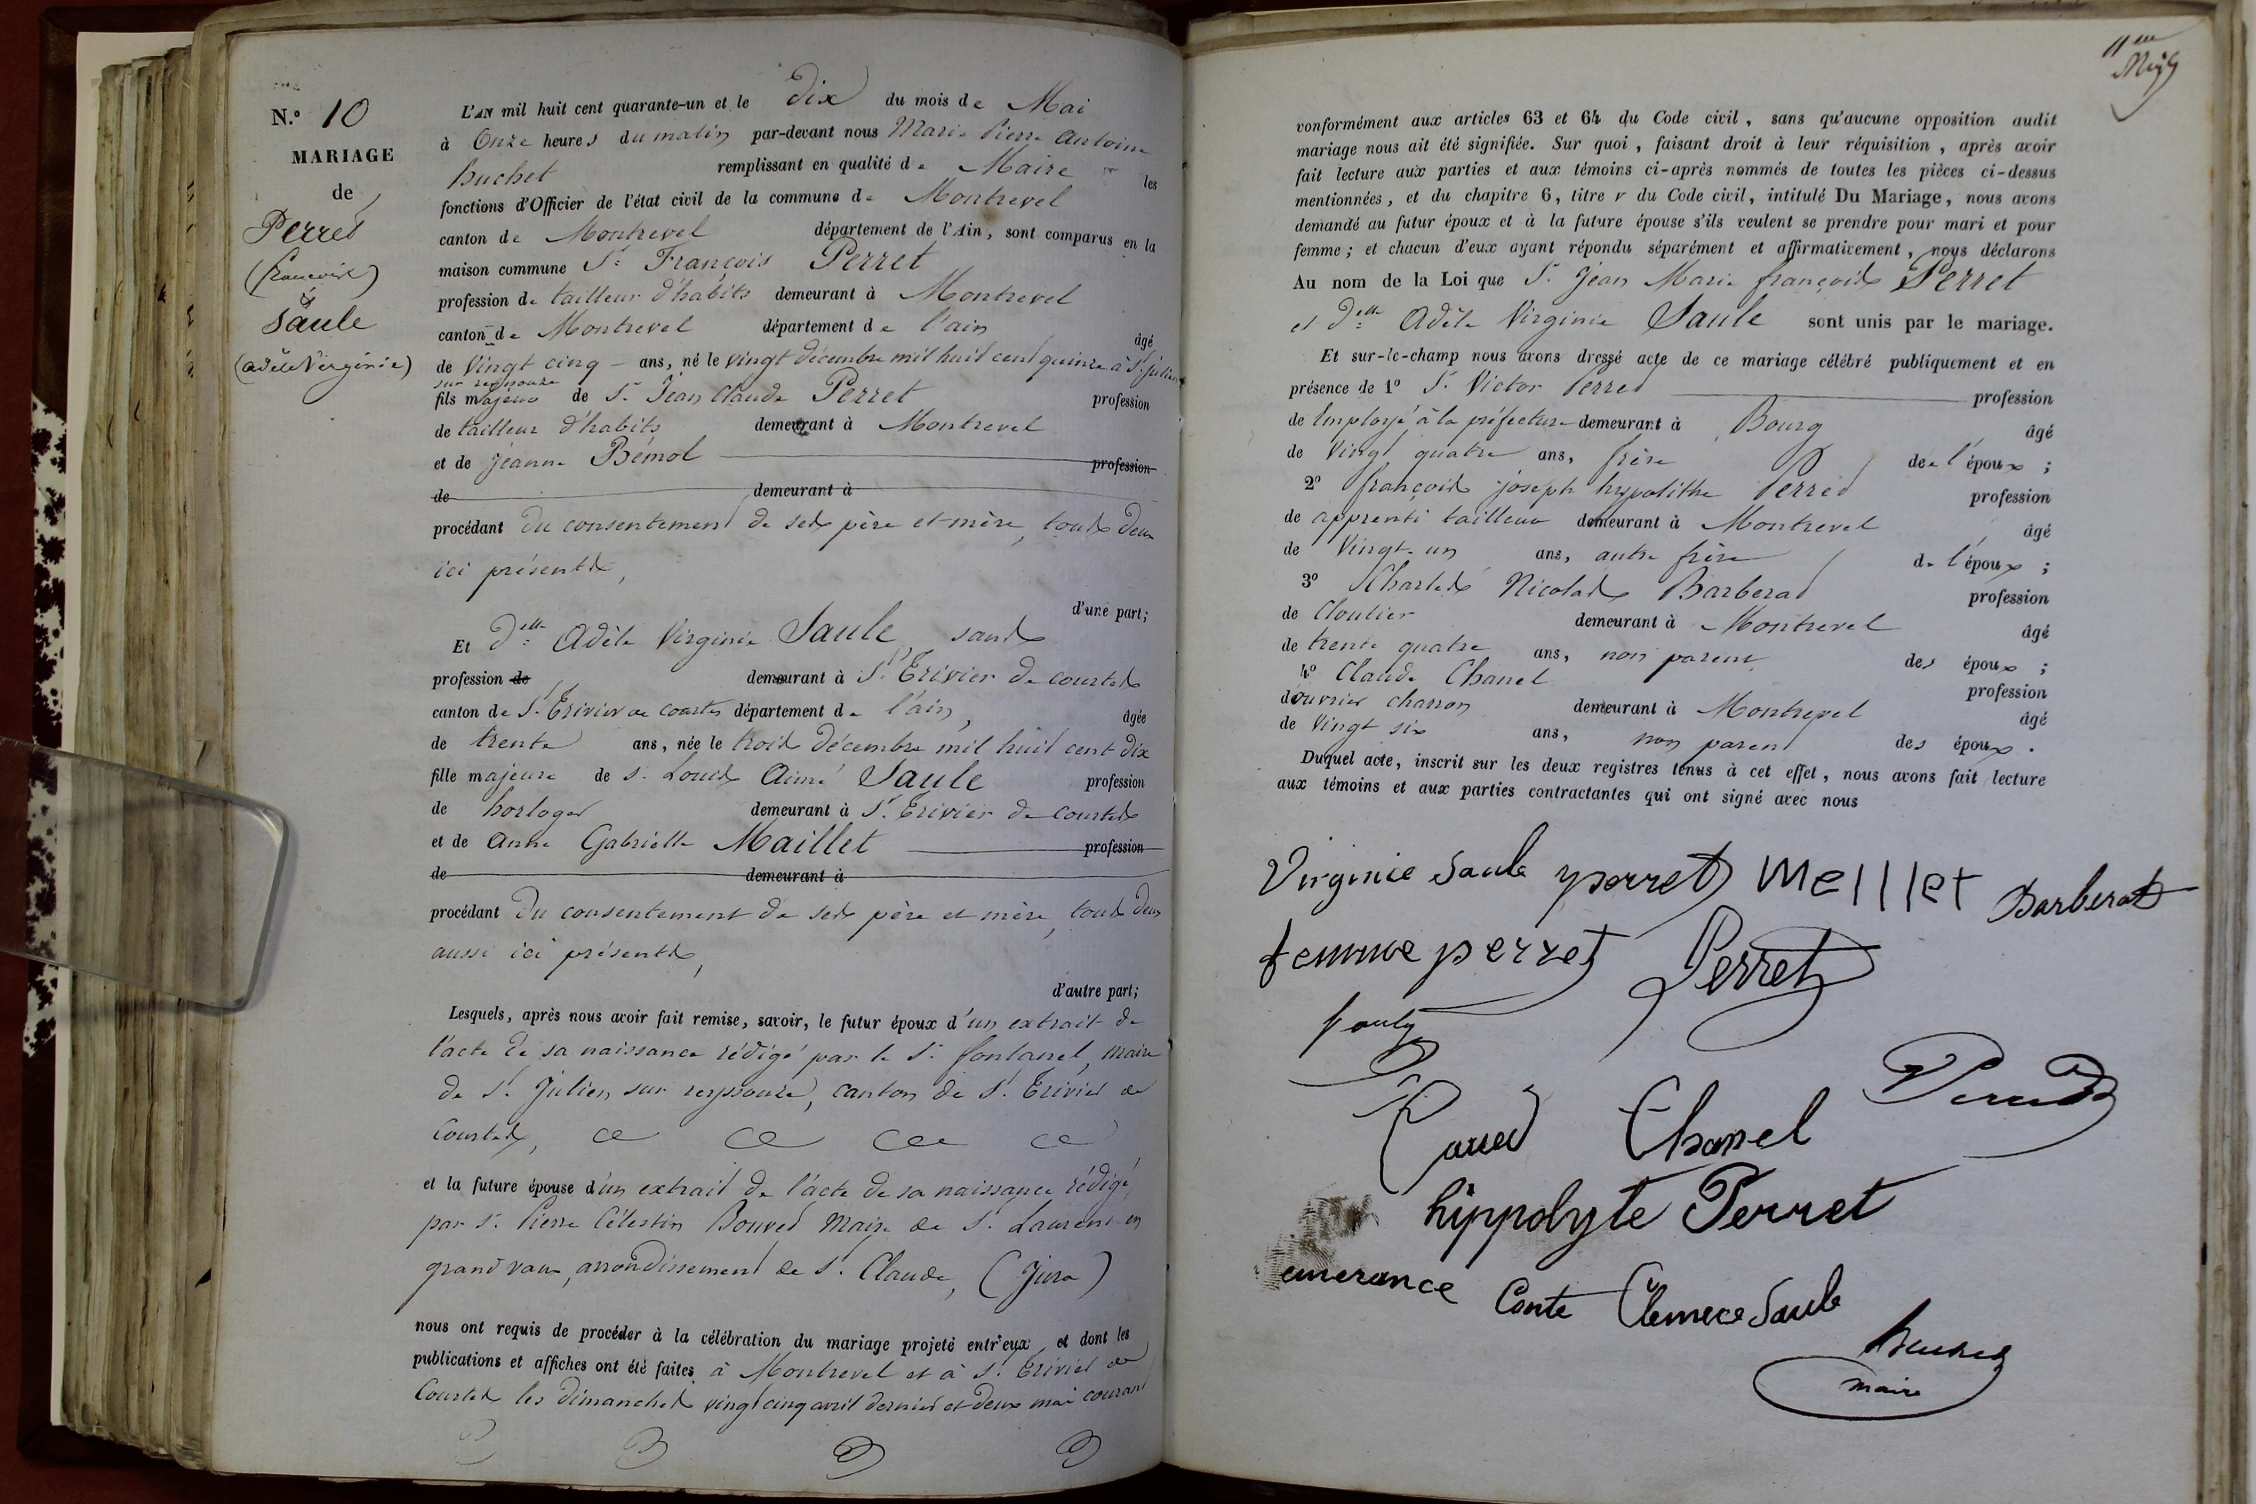 N.º 10
MARIAGE
de
Perret
(françois)
&
Saule
(adèle Virginie)
L'AN mil huit cent quarante-un et le dix du mois de Mai
à Onze heures du matin par-devant nous Marie Pierre Antoine
huchet remplissant en qualité de Maire les
fonctions d'Officier de l'état civil de la commune de Montrevel
canton de Montrevel département de l'Ain, sont comparus en la
maison commune Sr. François Perret
profession de tailleur d'habits demeurant à Montrevel
canton de Montrevel département de l'ain
âgé
de Vingt cinq ans, né le vingt décembre mil huit cent quinze à St. julien
sur reyssouze
fils majeur de Sr. Jean Claude Perret profession
de tailleur d'habits demeurant à Montrevel
et de jeanne Bémol profession
de demeurant à
procédant du consentement de ses père et mère, tous deux
ici présents,
d'une part;
Et Delle Adèle Virginie Saule sans
profession de demeurant à St. Trivier de courtes
canton de St. Trivier de courtes département de l'ain, âgée
de trente ans, née le trois décembre mil huit cent dix
fille majeure de Sr. Louis Aimé Saule profession
de horloger demeurant à St. Trivier de courtes
et de Anne Gabrielle Maillet profession
de demeurant à
procédant du consentement de ses père et mère, tous deux
aussi ici présents,
d'autre part;
Lesquels, après nous avoir fait remise, savoir, le futur époux d'un extrait de
l'acte de sa naissance rédigé par le Sr. fontanel, maire
de St. Julien sur reyssouze, canton de St. Trivier de
Courtes,
et la future épouse d'un extrait de l'acte de sa naissance rédigé
par Sr. Pierre Célestin Bouvet Maire de St. Laurent en
grand vaux, arrondissement de St. Claude, (Jura)
nous ont requis de procéder à la célébration du mariage projeté entr'eux, et dont les
publications et affiches ont été faites à Montrevel et à St. Trivier de
Courtes les dimanches vingt cinq avril dernier et deux mai courant
11me
conformément aux articles 63 et 64 du Code civil, sans qu'aucune opposition audit
mariage nous ait été signifiée. Sur quoi, faisant droit à leur réquisition, après avoir
fait lecture aux parties et aux témoins ci-après nommés de toutes les pièces ci-dessus
mentionnées, et du chapitre 6, titre v du Code civil, intitulé Du Mariage, nous avons
demandé au futur époux et à la future épouse s'ils veulent se prendre pour mari et pour
femme; et chacun d'eux ayant répondu séparément et affirmativement, nous déclarons
Au nom de la Loi que Sr. Jean Marie françois Perret
et Delle Adèle Virginie Saule sont unis par le mariage.
Et sur-le-champ nous avons dressé acte de ce mariage célébré publiquement et en
présence de 1º Sr. Victor Perret profession
de Employé à la préfecture demeurant à Bourg âgé
de Vingt quatre ans, frère de l'époux;
2º françois joseph hypolithe Perret profession
de apprenti tailleur demeurant à Montrevel âgé
de Vingt-un ans, autre frère de l'époux;
3º Charles Nicolas Barberat profession
de Cloutier demeurant à Montrevel âgé
de trente quatre ans, non parent des époux;
4º Claude Chanel profession
d'ouvrier charron demeurant à Montrevel âgé
de Vingt six ans, non parent des époux.
Duquel acte, inscrit sur les deux registres tenus à cet effet, nous avons fait lecture
aux témoins et aux parties contractantes qui ont signé avec nous
Virginie Saule perret Meillet Barberat
femme perret Perret
Chanel Perret
hippolyte Perret
Conte Clemece Saule
huchet
maire